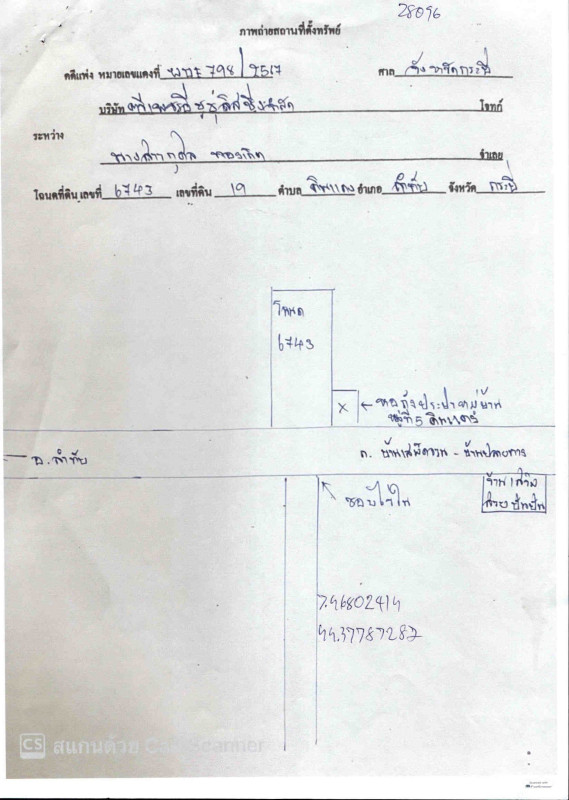 28096
ภาพถ่ายสถานที่ตั้งทรัพย์
คดีแพ่ง หมายเลขแดงที่ ผบE 798/2567 ศาล จังหวัดกระบี่
บริษัท จำกัด โจทก์
ระหว่าง
จำเลย
โฉนดที่ดิน เลขที่ 6743 เลขที่ดิน 19 ตำบล ดินแดง อำเภอ ลำทับ จังหวัด กระบี่
โฉนด
6743
x ← หอถังประปาหมู่บ้าน
หมู่ที่ 5 ดินแดง
อ. ลำทับ
ถ. บ้าน - บ้าน
ร้านเสริม
สวย ปิ่นปิ่น
ซอย
7.96802414
99.37787287
CS สแกนด้วย CamScanner